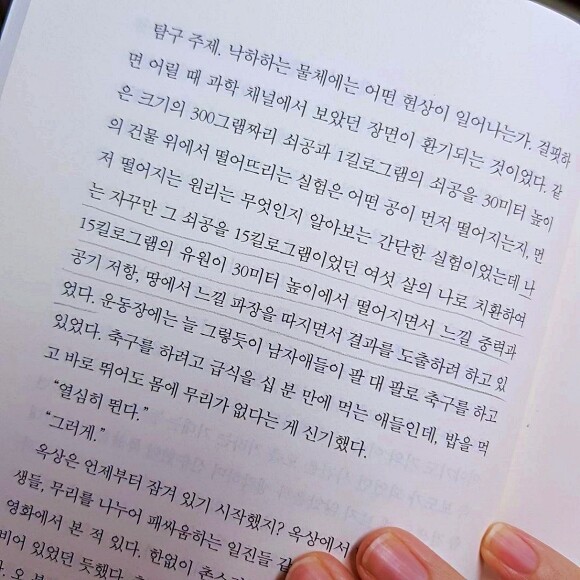 탐구 주제. 낙하하는 물체에는 어떤 현상이 일어나는가. 걸핏하
면 어릴 때 과학 채널에서 보았던 장면이 환기되는 것이었다. 같
은 크기의 300그램짜리 쇠공과 1킬로그램의 쇠공을 30미터 높이
의 건물 위에서 떨어뜨리는 실험은 어떤 공이 먼저 떨어지는지, 먼
저 떨어지는 원리는 무엇인지 알아보는 간단한 실험이었는데 나
는 자꾸만 그 쇠공을 15킬로그램이었던 여섯 살의 나로 치환하여
15킬로그램의 유원이 30미터 높이에서 떨어지면서 느낄 중력과
공기 저항, 땅에서 느낄 파장을 따지면서 결과를 도출하려 하고 있
었다. 운동장에는 늘 그렇듯이 남자애들이 팔 대 팔로 축구를 하고
있었다. 축구를 하려고 급식을 십 분 만에 먹는 애들인데, 밥을 먹
고 바로 뛰어도 몸에 무리가 없다는 게 신기했다.
“열심히 뛴다.”
“그러게.”
옥상은 언제부터 잠겨 있기 시작했지? 옥상에서
생들, 무리를 나누어 패싸움하는 일진들 같
영화에서 본 적 있다. 한없이
비어 있었던 듯했다.